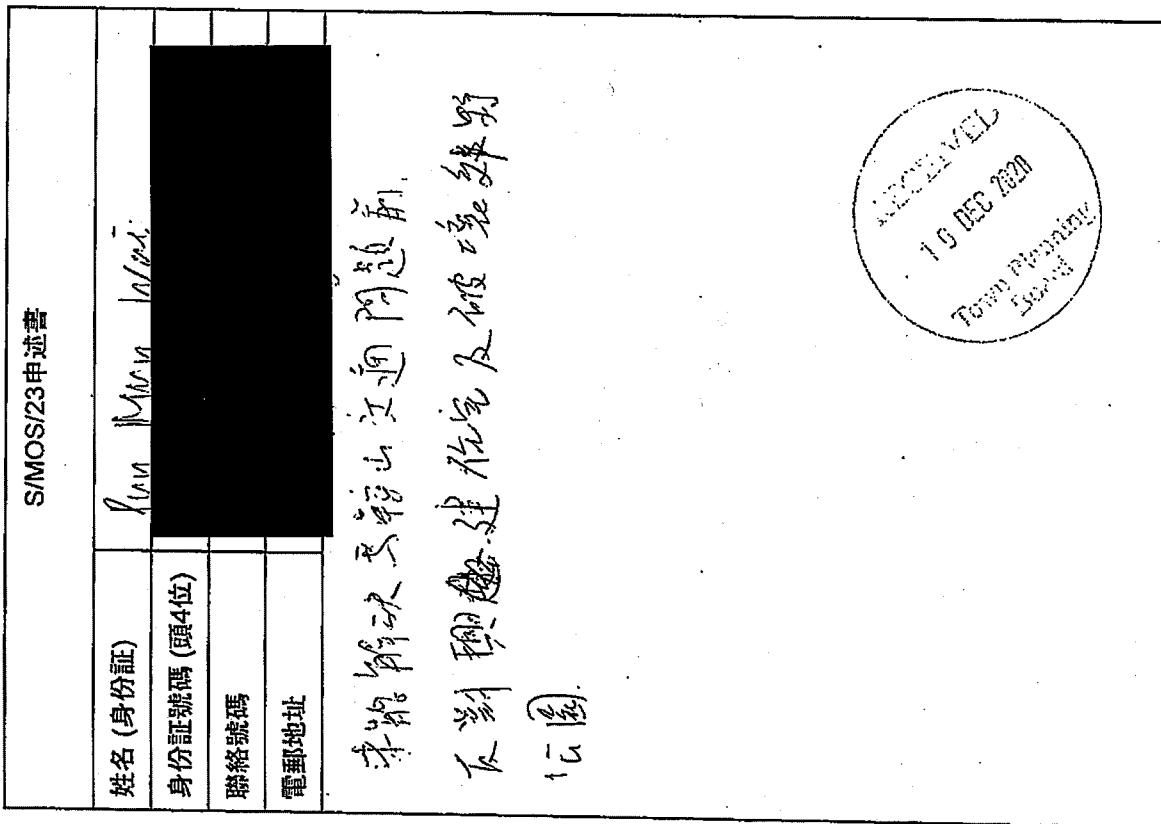 S/MOS/23申述書
姓名 (身份証)
Pun Man Wai
身份証號碼 (頭4位)
聯絡號碼
電郵地址
未能解決馬鞍山交通問題前,
反對興建住宅及破壞綠野
公園.
RECEIVED
10 DEC 2020
Town Planning
Board